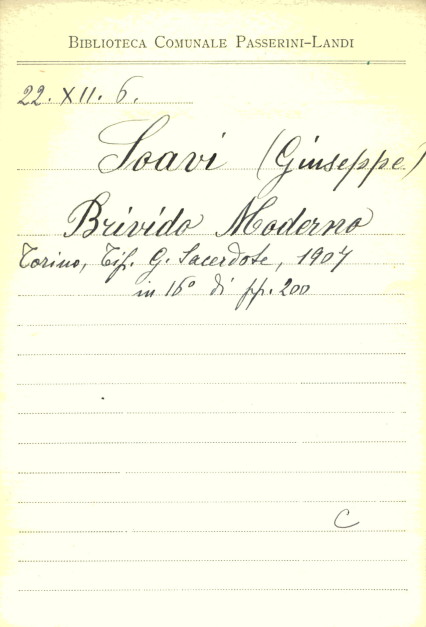 BIBLIOTECA COMUNALE PASSERINI-LANDI
22. XII. 6.
Soavi (Giuseppe)
Brivido Moderno
Torino, Tip. G. Sacerdote, 1907
in 16° di pp. 200
C